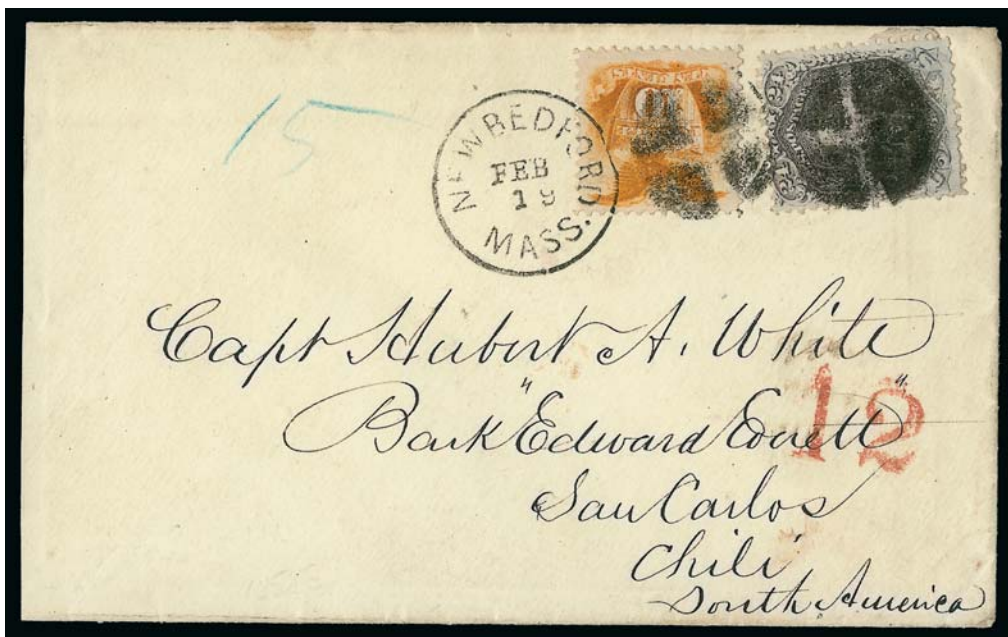 15
NEW BEDFORD
FEB
19
MASS.
10
Capt Hubert A. White
Bark "Edward Everett"
12
San Carlos
Chili
South America